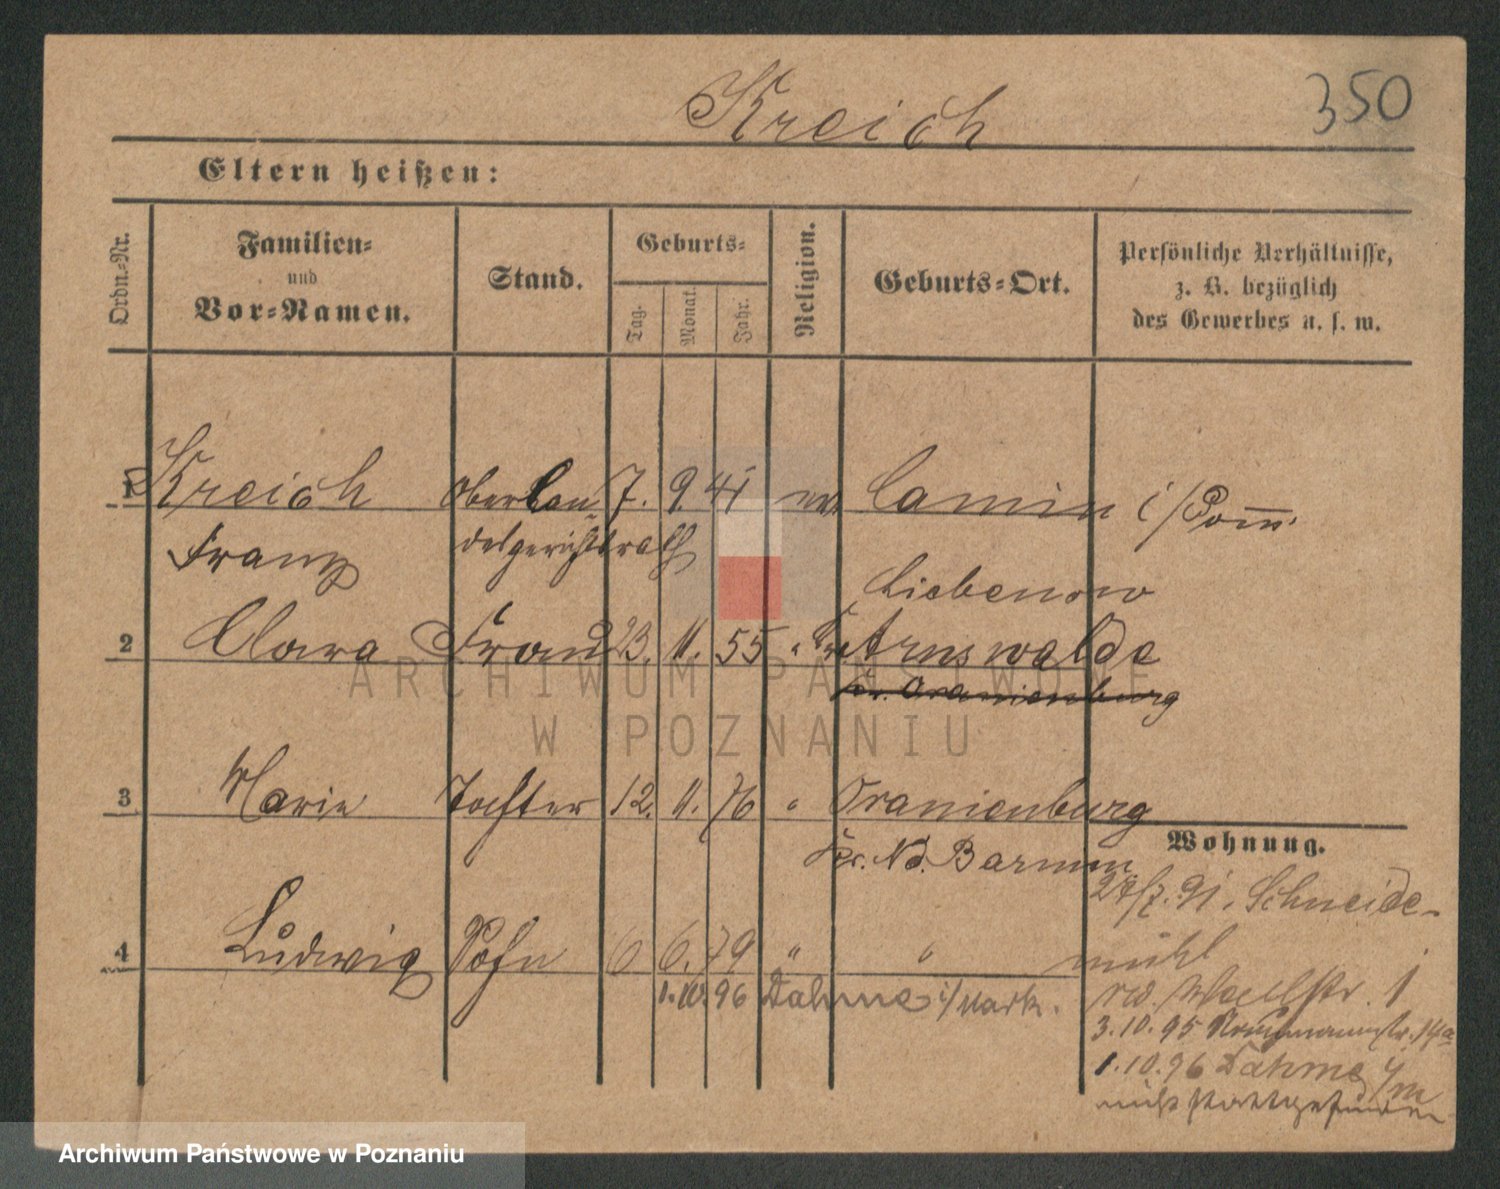 Kreich
350
Eltern heißen:
Ordn.-Nr.
Familien-
und
Vor-Namen.
Stand.
Geburts-
Tag.
Monat.
Jahr.
Religion.
Geburts-Ort.
Persönliche Verhältnisse,
z. B. bezüglich
des Gewerbes u. s. w.
1 Kreich Oberlan- 7. 9. 41 ev. Camin i/Pom.
Franz desgerichtsrath
Liebenow
2 Clara Frau 23. 11. 55 " Kr. Arnswalde
Kr. Oranienburg
3 Marie Tochter 12. 11. 76 " Oranienburg
Kr. Nd. Barnim
Wohnung.
28/7. 91. Schneide-
mühl
4 Ludwig Sohn 6 6. 79 " "
1.10.96 Dahme i/Mark.
Wallstr. 1
3.10.95 14a
1.10.96 Dahme i/M
nicht stattgefunden
ARCHIWUM PAŃSTWOWE
W POZNANIU
Archiwum Państwowe w Poznaniu